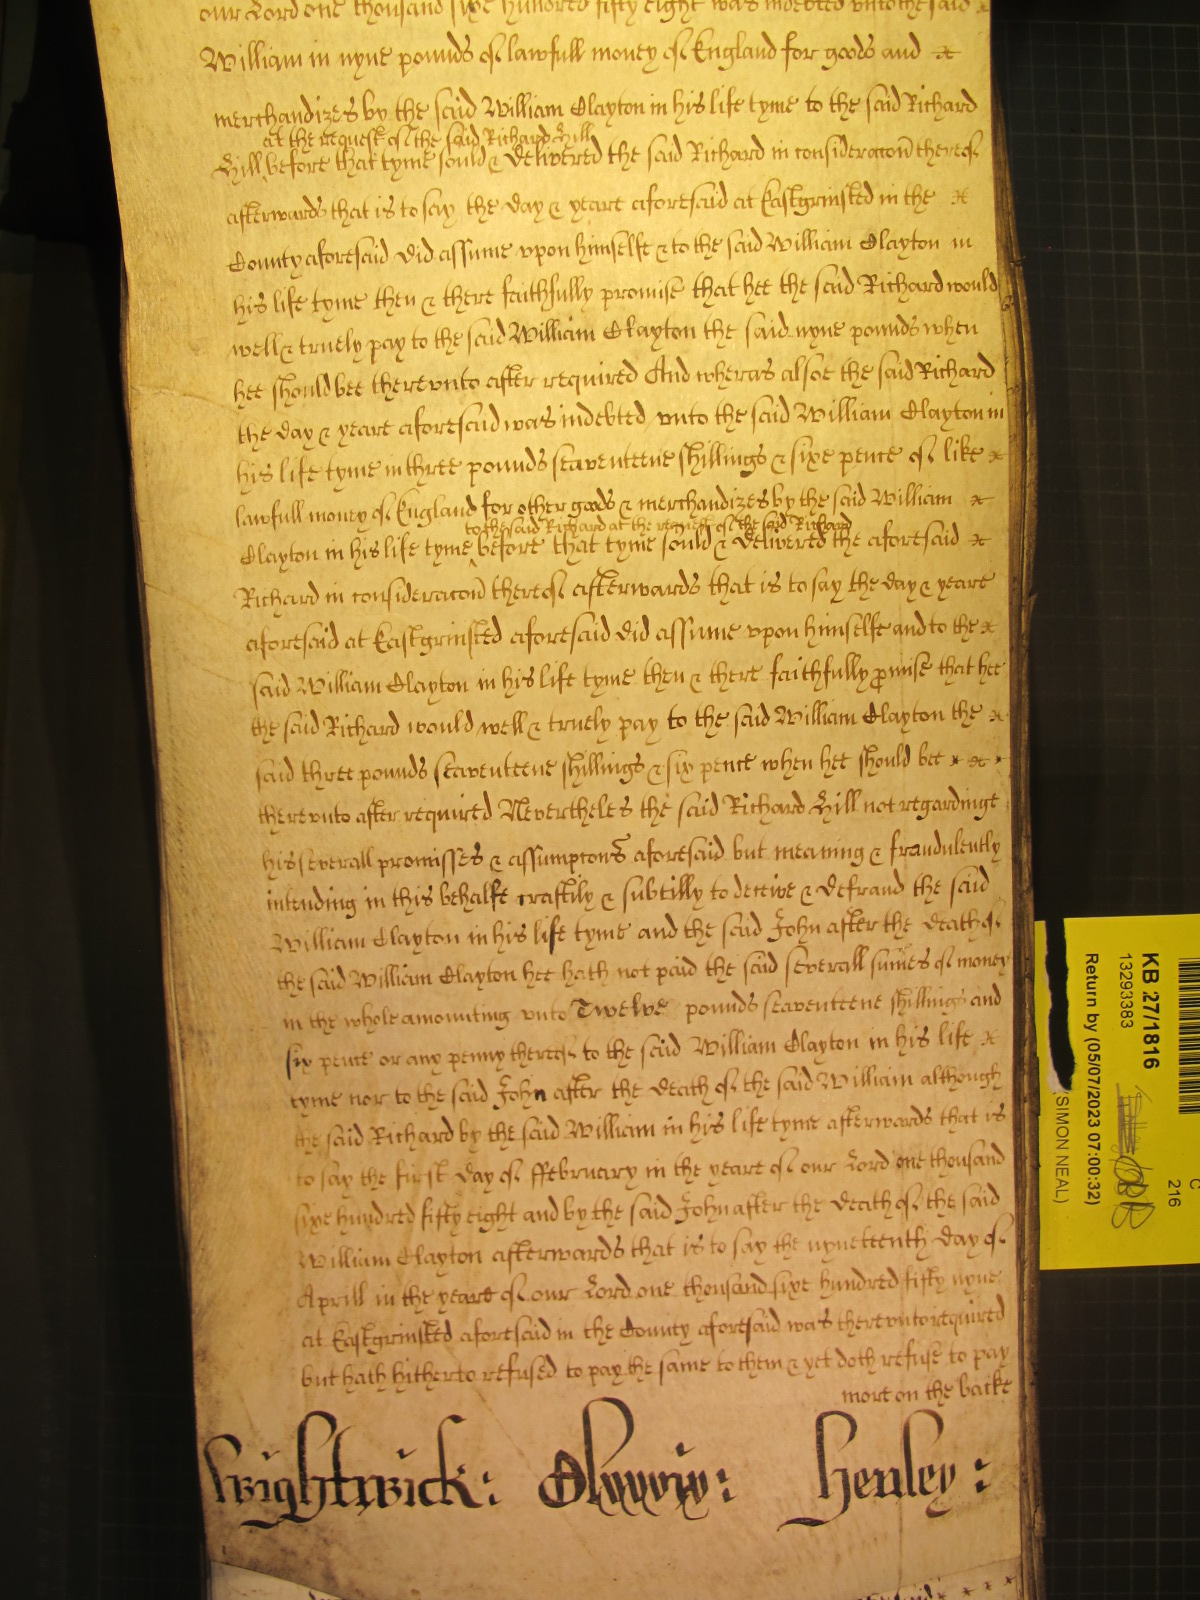 our Lord one thousand sixe hundred fifty eight was indebted unto the said
William in nyne pounds of lawfull money of England for goods and
merchandizes by the said William Clayton in his life tyme to the said Richard
at the request of the said Richard Hill
Hill before that tyme sould & delivered the said Richard in consideracon thereof
afterwards that is to say the day & yeare aforesaid at Eastgrinsted in the
County aforesaid did assume upon himselfe & to the said William Clayton in
his life tyme then & there faithfully promise that hee the said Richard would
well & truely pay to the said William Clayton the said nyne pounds when
hee should bee thereunto after required And wheras alsoe the said Richard
the day & yeare aforesaid was indebted unto the said William Clayton in
his life tyme in three pounds seaventeene shillings & sixe pence of like
lawfull money of England for other goods & merchandizes by the said William
to the said Richard at the request of the said Richard
Clayton in his life tyme before that tyme sould & delivered the aforesaid
Richard in consideracon thereof afterwards that is to say the day & yeare
aforesaid at Eastgrinsted aforesaid did assume upon himselfe and to the
said William Clayton in his life tyme then & there faithfully pmise that hee
the said Richard would well & truely pay to the said William Clayton the
said three pounds seaventeene shillings & six pence when hee should bee
thereunto after required Nevertheles the said Richard Hill not regardinge
his severall promisses & assumptons aforesaid but meaning & fraudulently
intending in this behalfe craftily & subtilly to deceive & defraud the said
William Clayton in his life tyme and the said John after the death of
the said William Clayton hee hath not paid the said severall sumes of money
in the whole amounting unto Twelve pounds seaventeene shillings and
six pence or any penny thereof to the said William Clayton in his life
tyme nor to the said John after the death of the said William although
the said Richard by the said William in his life tyme afterwards that is
to say the first day of ffebruary in the yeare of our Lord one thousand
sixe hundred fifty eight and by the said John after the death of the said
William Clayton afterwards that is to say the nyneteenth day of
Aprill in the yeare of our Lord one thousand sixe hundred fifty nyne
at Eastgrinsted aforesaid in the County aforesaid was thereunto required
but hath hitherto refused to pay the same to them & yet doth refuse to pay
more on the backe
Wightwick: Henley:
KB 27/1816
13293383
Return by (05/07/2023 07:00:32)
(SIMON NEAL)
C
216